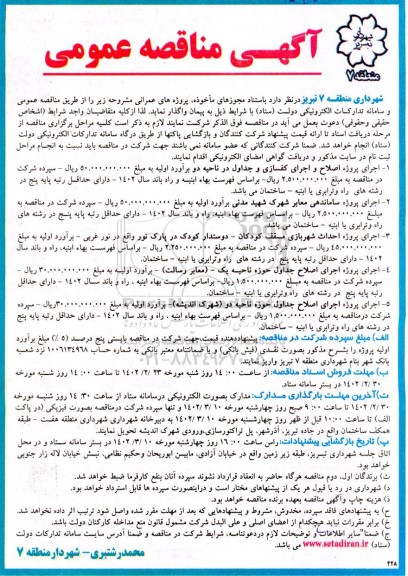 شهرداری
تبریز
منطقه ۷
آگهـی مناقصه عمومی
شهرداری منطقـه ۷ تبریز درنظر دارد باستناد مجوزهای مأخوذه، پروژه های عمرانی مشروحه زیر را از طریق مناقصه عمومی
و سامانه تدارکات الکترونیکی دولت (ستاد) با شرایط ذیل به پیمان واگذار نماید. لذا ازکلیه متقاضیان واجد شرایط (اشخاص
حقیقی وحقوقی) دعوت بعمل می آید در مناقصه فوق الذکر شرکت نمایند. لازم به ذکر است کلیه مراحل برگزاری مناقصه از
مرحله دریافت اسناد تا ارائه قیمت پیشنهاد شرکت کنندگان و بازگشایی پاکتها از طریق درگاه سامانه تدارکات الکترونیکی دولت
(ستاد) انجام خواهد شد. ضمنا شرکت کنندگانی که عضو سامانه نمی باشند جهت شرکت در مناقصه باید نسبت به انجام مراحل
ثبت نام در سایت مذکور و دریافت گواهی امضای الکترونیکی اقدام نمایند.
۱- اجرای پروژه اصلاح و اجرای کفسازی و جداول در ناحیه دو برآورد اولیه به مبلغ ۵۰،۰۰۰،۰۰۰،۰۰۰ ریال - سپرده شرکت
در مناقصه به مبلغ ۲،۵۰۰،۰۰۰،۰۰۰ ریال- براساس فهرست بهاء ابنیه و راه باند سال ۱۴۰۲ - دارای حداقل رتبه پایه پنج در
رشته های راه وترابری یا ابنیه - ساختمان می باشد.
۲- اجرای پروژه ساماندهی معابر شهرک شهید مدنی برآورد اولیه به مبلغ ۵۰،۰۰۰،۰۰۰،۰۰۰ ریال - سپرده شرکت در مناقصه به
مبلغ ۲،۵۰۰،۰۰۰،۰۰۰ ریال - براساس فهرست بهاء ابنیه، راه و باند سال ۱۴۰۲ - دارای حداقل رتبه پایه پنج در رشته های
راه وترابری یا ابنیه - ساختمان.
۳- اجرای پروژه احداث شهربازی مسقف کودکان - دوستدار کودک در پارک نور واقع در نور غربی - برآورد اولیه به مبلغ
۴۵،۰۰۰،۰۰۰،۰۰۰ ریال - سپرده شرکت در مناقصه به مبلغ ۲،۲۵۰،۰۰۰،۰۰۰ ریال - براساس فهرست بهاء ابنیه، راه و باند سال
۱۴۰۲ - دارای حداقل رتبه پایه پنج در رشته های راه وترابری یا ابنیه - ساختمان.
۴- اجرای پروژه اجرای اصلاح جداول حوزه ناحیه یک - (معابر رسالت) - برآورد اولیه به مبلغ ۳۰،۰۰۰،۰۰۰،۰۰۰ ریال -
سپرده شرکت در مناقصه به مبلغ ۱،۵۰۰،۰۰۰،۰۰۰ ریال- براساس فهرست بهاء ابنیه ، راه و باند سال ۱۴۰۲ - دارای حداقل
رتبه پایه پنج در رشته های راه وترابری یا ابنیه - ساختمان.
۵- اجرای پروژه اجرای اصلاح جداول حوزه ناحیه دو (شهرک اندیشه)- برآورد اولیه به مبلغ ۳۰،۰۰۰،۰۰۰،۰۰۰ ریال - سپرده
شرکت درمناقصه به مبلغ ۱،۵۰۰،۰۰۰،۰۰۰ ریال - براساس فهرست بهاء ابنیه ، راه و باند سال ۱۴۰۲ - دارای حداقل رتبه پایه
پنج در رشته های راه وترابری یا ابنیه - ساختمان.
الف) مبلغ سپرده شرکت در مناقصه: پیشنهاددهنده قیمت جهت شرکت در مناقصه بایستی پنج درصد (۵ ٪) مبلغ برآورد
اولیه پروژه را بشرح مذکور بصورت نقدی (فیش بانکی) و یا ضمانتنامه معتبر بانکی به شماره حساب نزد شعبه
بانک شهر بنام شهرداری منطقه ۷ تبریز واریز نمایند.
ب) مهلت فروش اسناد مناقصه: از ساعت ۱۴:۰۰ روز شنبه مورخه ۱۴۰۲/۲/۲۳ تا ساعت ۱۴:۰۰ روز شنبه مورخه
۱۴۰۲/۲/۳۰ در بستر سامانه ستاد.
ت) آخرین مهلت بارگذاری مدارک: مدارک بصورت الکترونیکی درسامانه ستاد از ساعت ۱۴:۳۰ روز شنبه مورخه
۱۴۰۲/۲/۳۰ تا ساعت ۹:۰۰ صبح روز چهارشنبه مورخه ۱۴۰۲/۳/۱۰ و تنها سپرده شرکت درمناقصه بصورت فیزیکی (در پاکت
الف) تا ساعت ۱۰:۰۰ قبل از ظهر روز چهارشنبه مورخه ۱۴۰۲/۳/۱۰ به دبیرخانه شهرداری منطقه هفت - طبقه
همکف ساختمان واقع در جاده تبریز، آذرشهر، پل تراکتورسازی،ورودی شهرک اندیشه تحویل نمایند.
پ) تاریخ بازگشایی پیشنهادات: راس ساعت ۱۶:۰۰ روز چهارشنبه مورخه ۱۴۰۲/۳/۱۰ در بستر سامانه ستاد و در محل
اتاق جلسه شهرداری تبریز، طبقه زیر زمین واقع در خیابان آزادی، مابین ابوریحان وحکیم نظامی، نبش خیابان لاله زار جنوبی
خواهد بود.
ث) برندگان اول، دوم مناقصه هرگاه حاضر به انعقاد قرارداد نشوند سپرده آنان بنفع کارفرما ضبط خواهد شد.
د) شهرداری در رد یا قبول هر یک از پیشنهادهای مختار است و دراینصورت سپرده ها قابل استرداد خواهد بود.
ذ) هزینه چاپ وآگهی مناقصه بعهده برنده مناقصه خواهد بود.
ح) به پیشنهادهای فاقد سپرده، مخدوش، مشروط و پیشنهادهایی که بعد از مهلت مقرر شده واصل شود ترتیب اثر داده نخواهد شد.
خ) برابر مقررات نباید هیچکدام از اعضای اصلی و علی البدل شرکت مشمول قانون منع مداخله کارکنان دولت باشد.
ج) ضمنا"سایر اطلاعات و توضیحات لازم دردعوتنامه، شرایط شرکت در مناقصه و ضمنا آدرس سایت سامانه تدارکات دولت
(ستاد) www.setadiran.ir می باشد.
محمدرشتبری - شهردارمنطقه ۷
۲۴۸